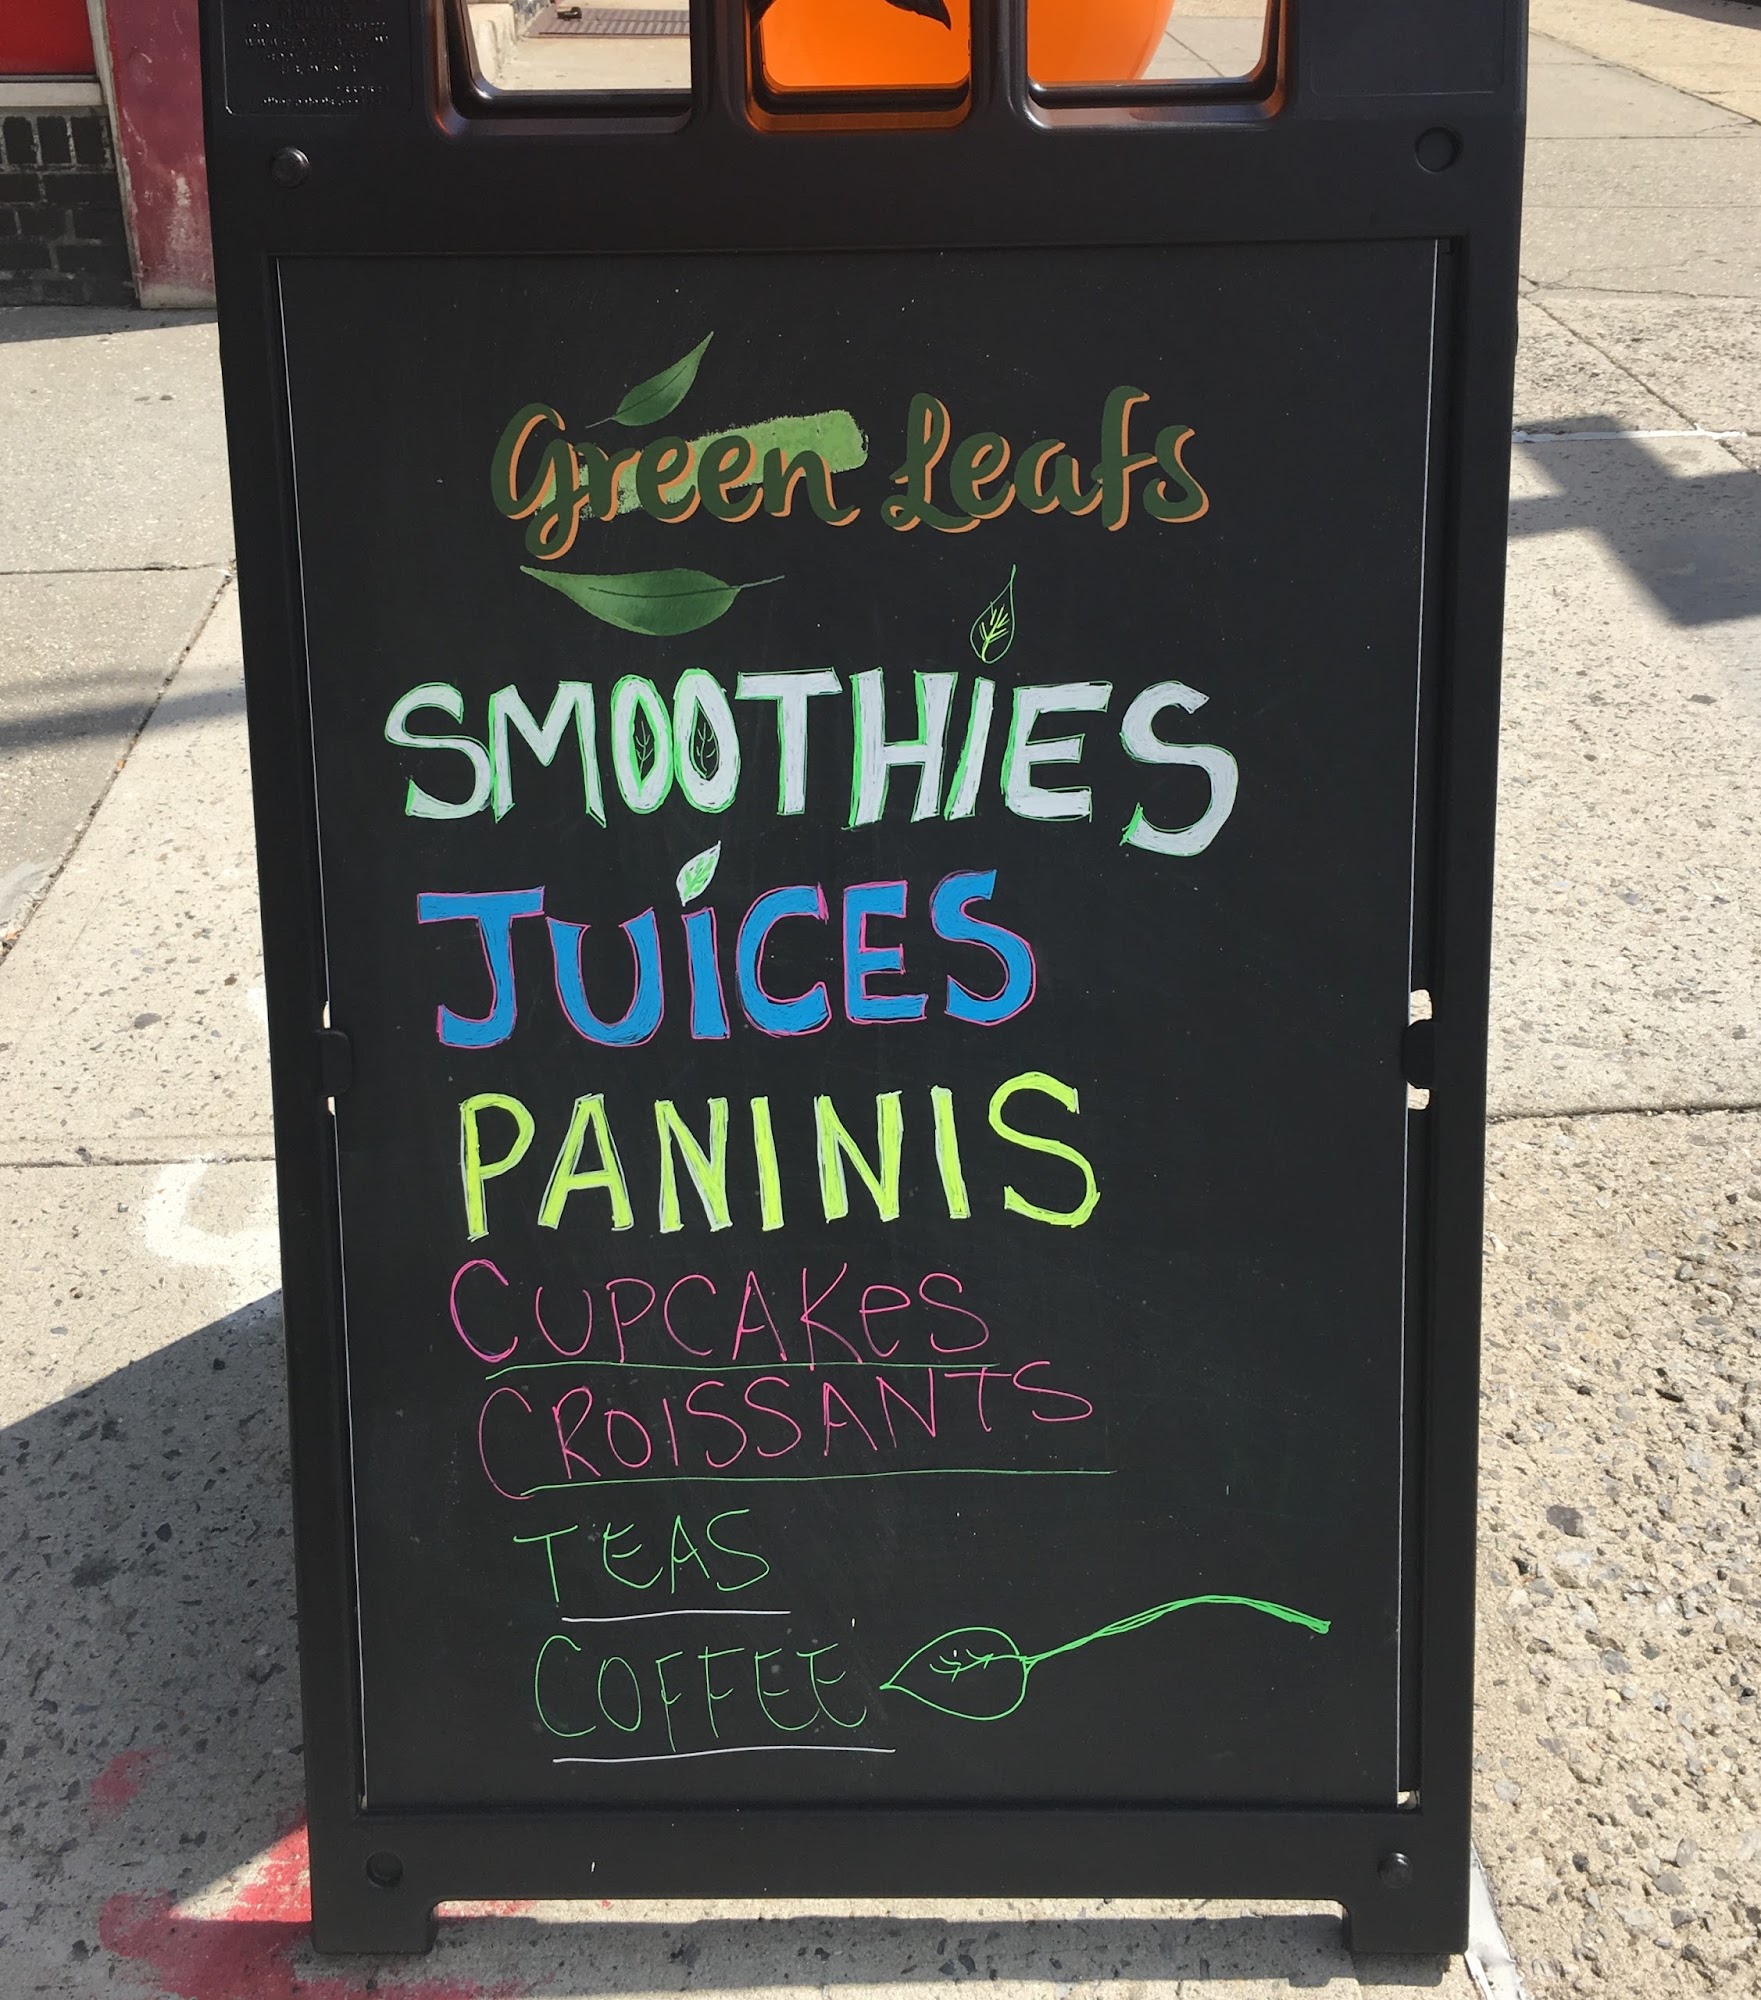 Green Leafs
SMOOTHIES
JUICES
PANINIS
CUPCAKeS
CROISSANTS
TEAS
COFFEE